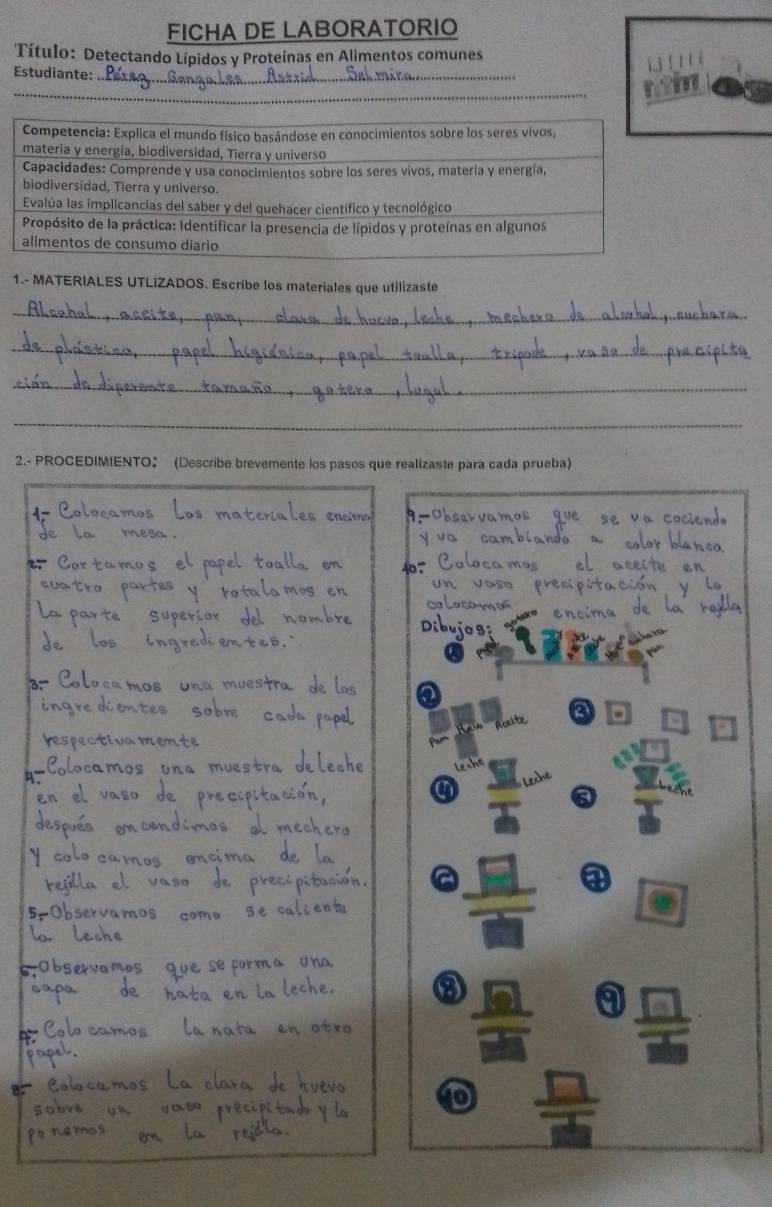 FICHA DE LABORATORIO
Título: Detectando Lípidos y Proteínas en Alimentos comunes
Estudiante: Pérez Gonzales Astrid Selmira
Competencia: Explica el mundo físico basándose en conocimientos sobre los seres vivos,
materia y energía, biodiversidad, Tierra y universo
Capacidades: Comprende y usa conocimientos sobre los seres vivos, materia y energía,
biodiversidad, Tierra y universo.
Evalúa las implicancias del saber y del quehacer científico y tecnológico
Propósito de la práctica: Identificar la presencia de lípidos y proteínas en algunos
alimentos de consumo diario
1.- MATERIALES UTLIZADOS. Escribe los materiales que utilizaste
Alcohol, aceite, pan, clara de huevo, leche, mechero de alcohol, cuchara
de plástico, papel higiénico, papel toalla, tripode, vaso de precipita
ción de diferente tamaño, gotero, lugol.
2.- PROCEDIMIENTO: (Describe brevemente los pasos que realizaste para cada prueba)
1- Colocamos los materiales encima
de la mesa.
2- Cortamos el papel toalla en
cuatro partes y rotalamos en
la parte superior del nombre
de los ingredientes.
3- Colocamos una muestra de los
ingredientes sobre cada papel
respectivamente
4- Colocamos una muestra de leche
en el vaso de precipitación,
después encendimos el mechero
y colocamos encima de la
rejilla el vaso de precipitación.
5- Observamos como se calienta
la leche
6- Observamos que se forma una
capa de nata en la leche.
7- Colocamos la nata en otro
papel.
8- Colocamos la clara de huevo
sobre un vaso precipitado y lo
ponemos en la rejilla.
9- Observamos que se va cociendo
y va cambiando a color blanca
10- Colocamos el aceite en
un vaso precipitación y lo
colocamos encima de la rejilla
Dibujos:
gotero
papel
Aceite
pan
1
2
Pan Aceite
Leche
3
4
Leche
5
Leche
7
8
9
10